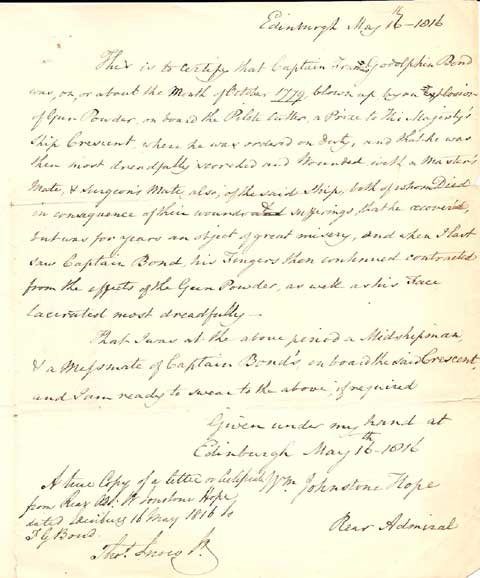 Edinburgh May 16th - 1816
This is to certify that Captain Fras Godolphin Bond
was, on, or about the Month of October 1779, blown up by an Explosion
of Gun Powder, on board the Cutter, a Prize to His Majesty's
Ship Crescent, where he was ordered on Duty, and that he was
then most dreadfully scorched and Wounded, with a Master's
Mate, & Surgeon's Mate, also, of the said Ship, both of whom Died
in consequence of their wounds and sufferings, that he recover'd,
but was for years an object of great misery, and when I last
saw Captain Bond, his Fingers then continued contracted
from the effects of the Gun Powder, as well as his Face
lacerated most dreadfully —
That I was at the above period a Midshipman
& a Messmate of Captain Bond's, on board the said Crescent,
and I am ready to swear to the above, if required
Given under my hand at
Edinburgh May 16th 1816
Wm Johnstone Hope
Rear Admiral
A true Copy of a letter or Certificate
from Rear Adl Johnstone Hope,
dated 16 May 1816 to
F G Bond.
Thos.